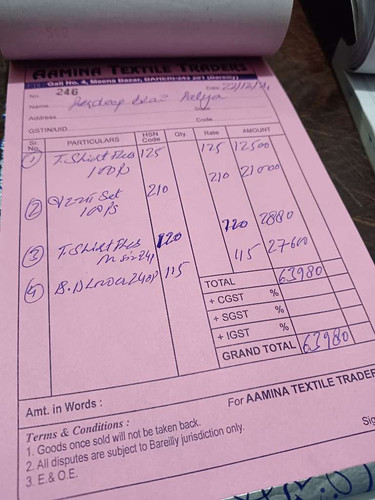 AAMINA TEXTILE TRADERS
Gali No. 4, Meena Bazar, BAHERI-243 201 (Bareilly)
No. 246 Date 22/12/
Name
Address State
Code
GSTIN/UID
Sr. No. PARTICULARS HSN Code Qty. Rate AMOUNT
1 T.Shirt Pcs 125 125 12500
100 Ps
210 21000
2 Set 210
100 Ps
3 T.Shirt Pcs 120 120 2880
24
4 115 115 27600
TOTAL 63980
+ CGST %
+ SGST %
+ IGST %
GRAND TOTAL 63980
Amt. in Words :
For AAMINA TEXTILE TRADER
Terms & Conditions :
1. Goods once sold will not be taken back.
2. All disputes are subject to Bareilly jurisdiction only.
3. E.& O.E.
Sig